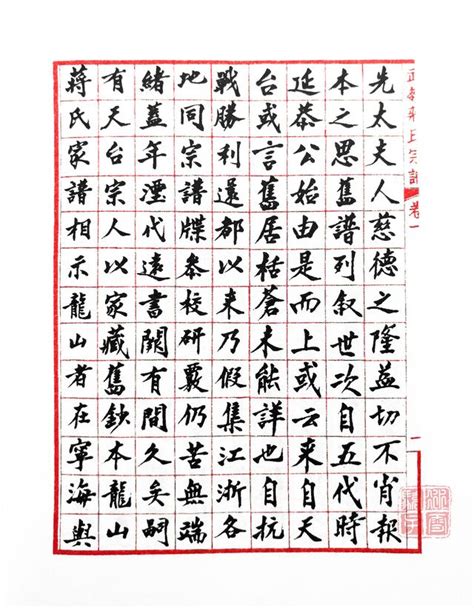 武嶺蔣氏宗譜 卷一
一
先太夫人慈德之隆益切不肖報
本之思舊譜列叙世次自五代時
延恭公始由是而上或云來自天
台或言舊居栝蒼未能詳也自抗
戰勝利還都以來乃假集江浙各
地同宗譜牒參校研覈仍苦無端
緒蓋年湮代遠書闕有間久矣嗣
有天台宗人以家藏舊鈔本龍山
蔣氏家譜相示龍山者在寧海與